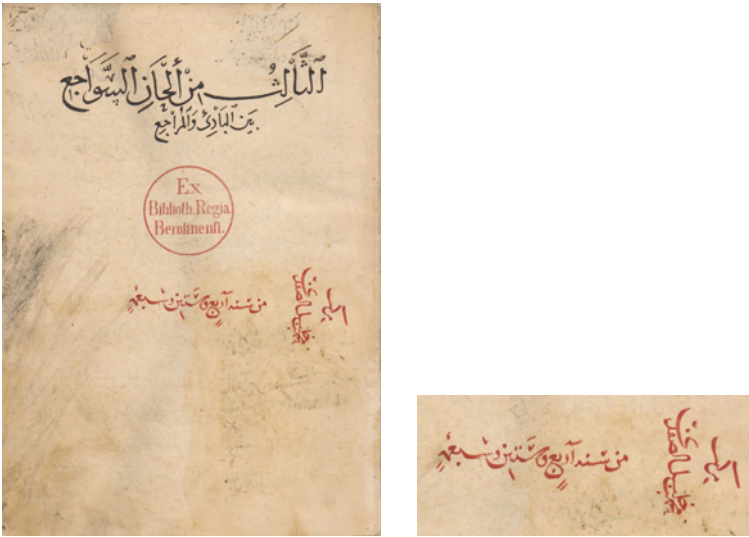 الثَّالِثُ مِنْ أَلْحَانِ السَّوَاجِعِ
بَيْنَ الْبَادِئِ وَالْمُرَاجِعِ
Ex
Biblioth. Regia
Berolinensi.
من سنة أربع وستين وسبعمئة
من سنة أربع وستين وسبعمئة